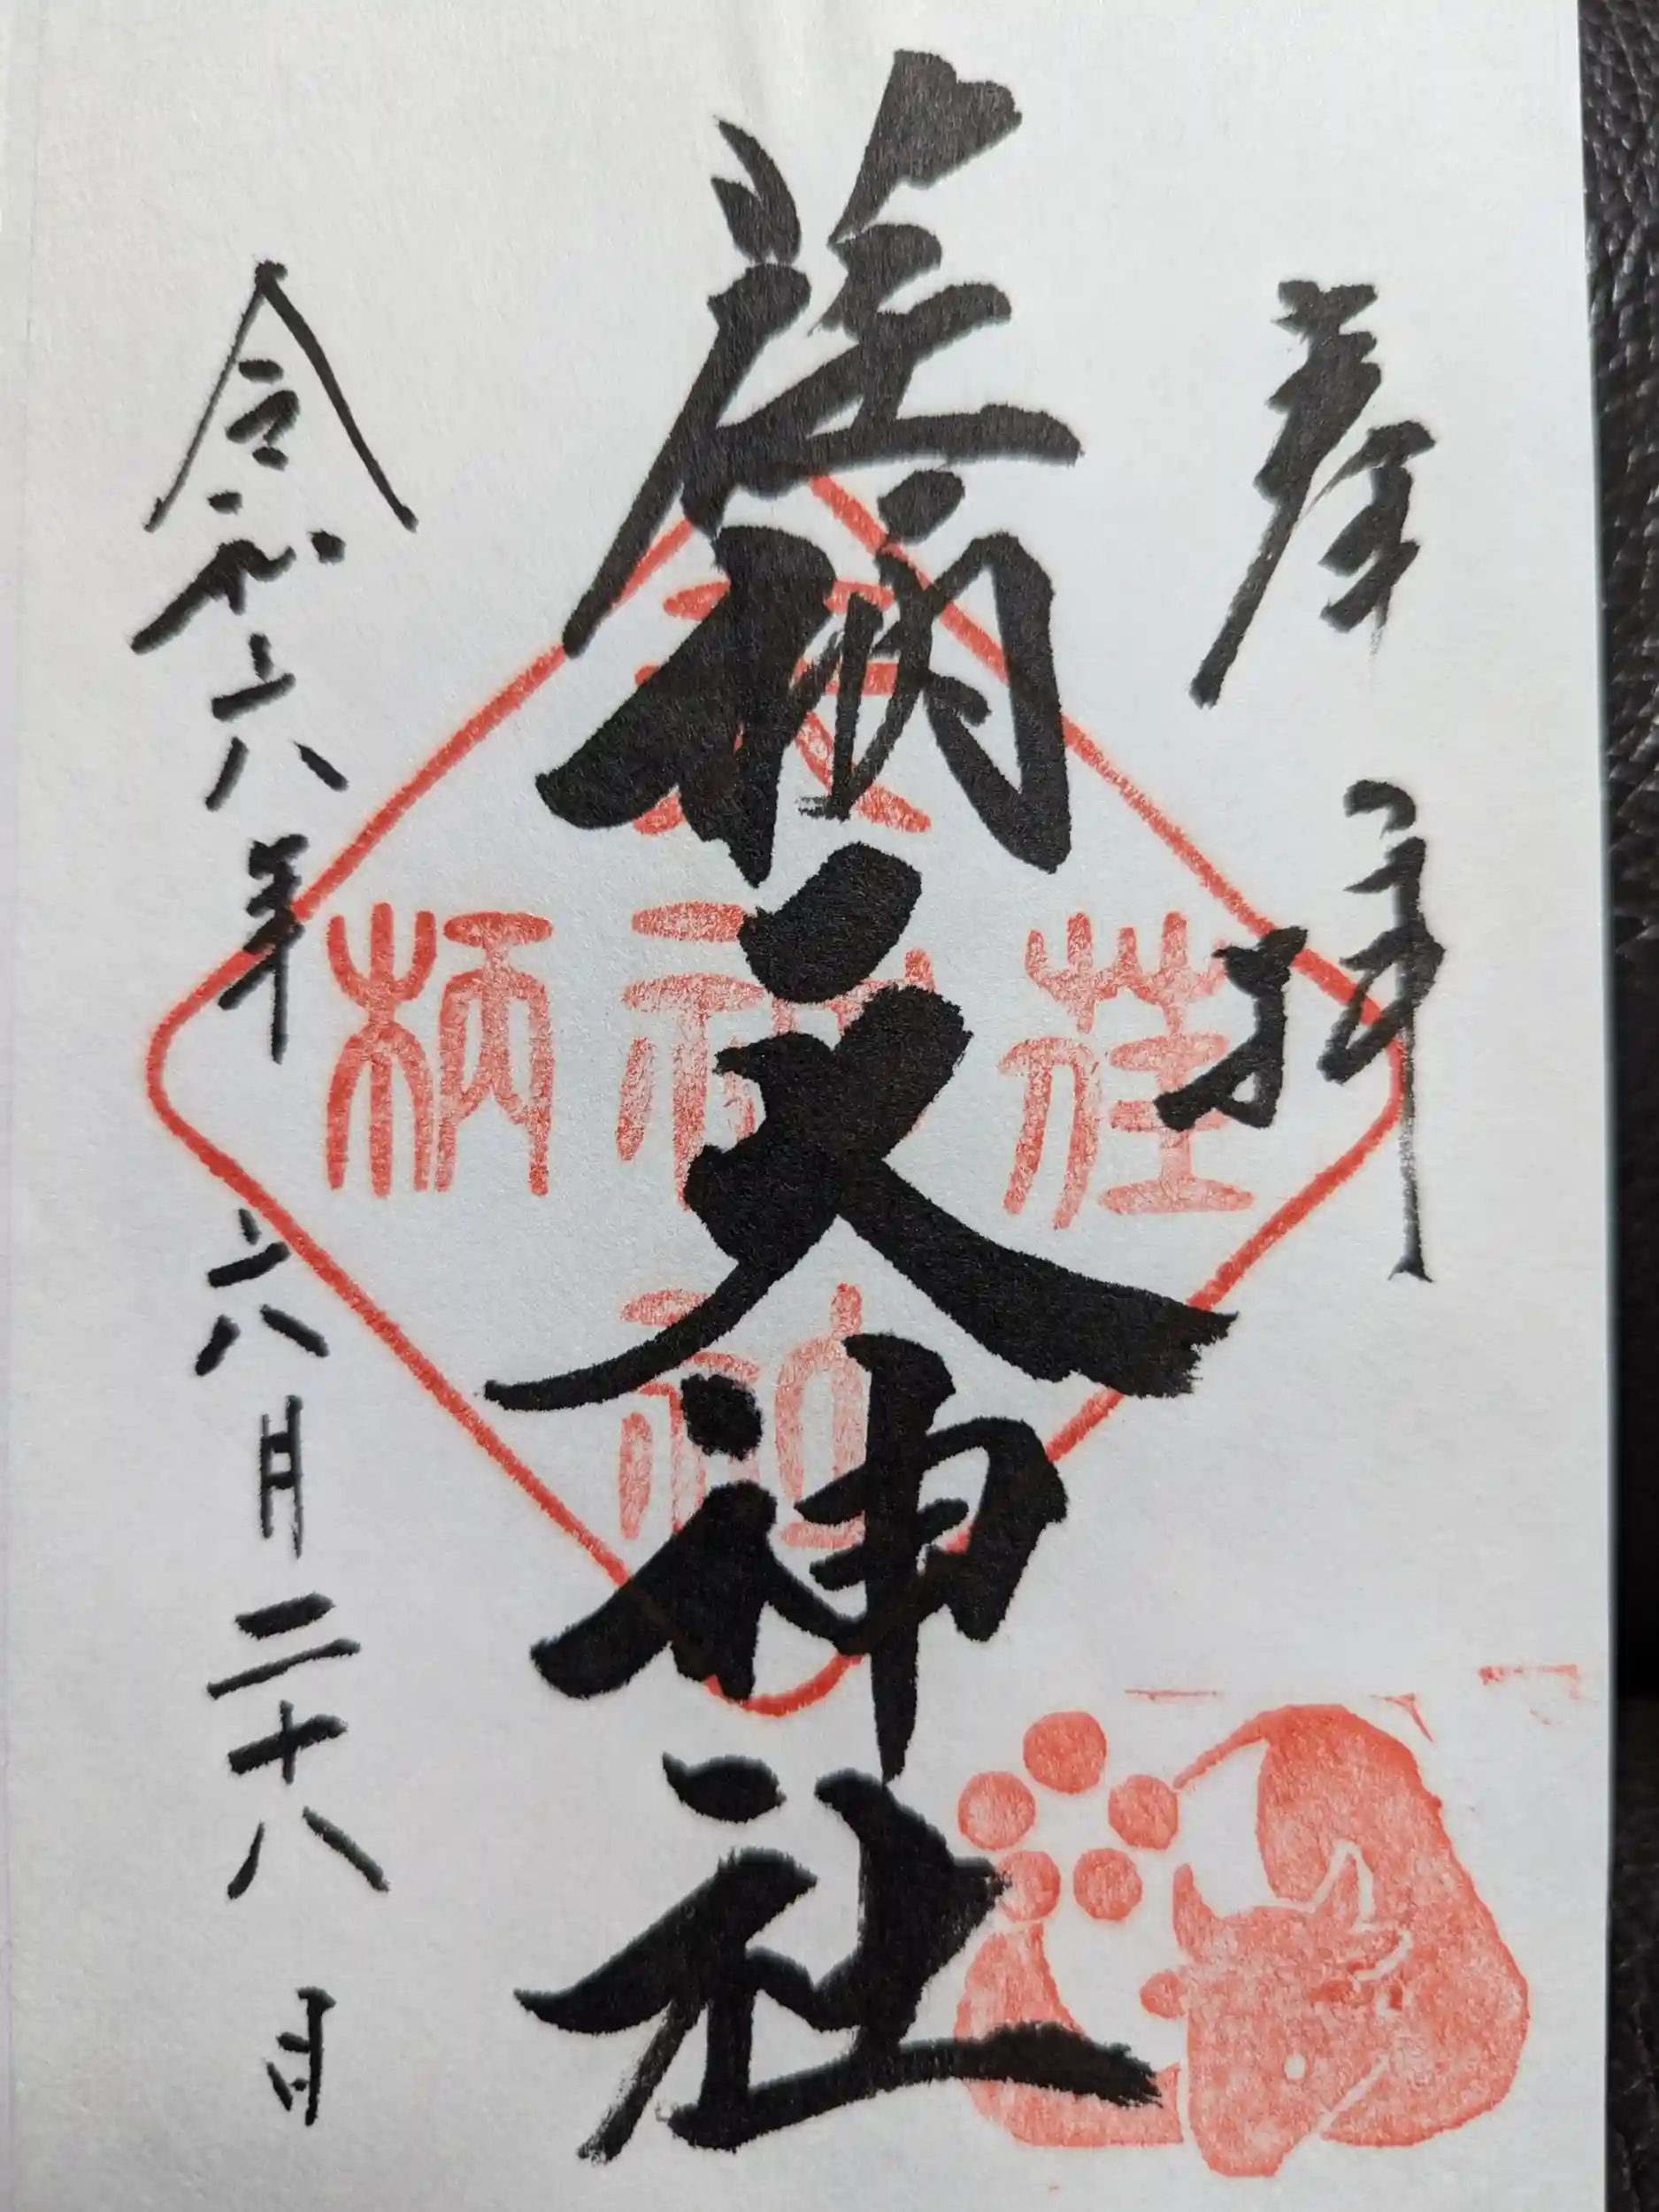 奉拝
荏柄天神社
令和六年 六月二十八日
荏柄
天神社